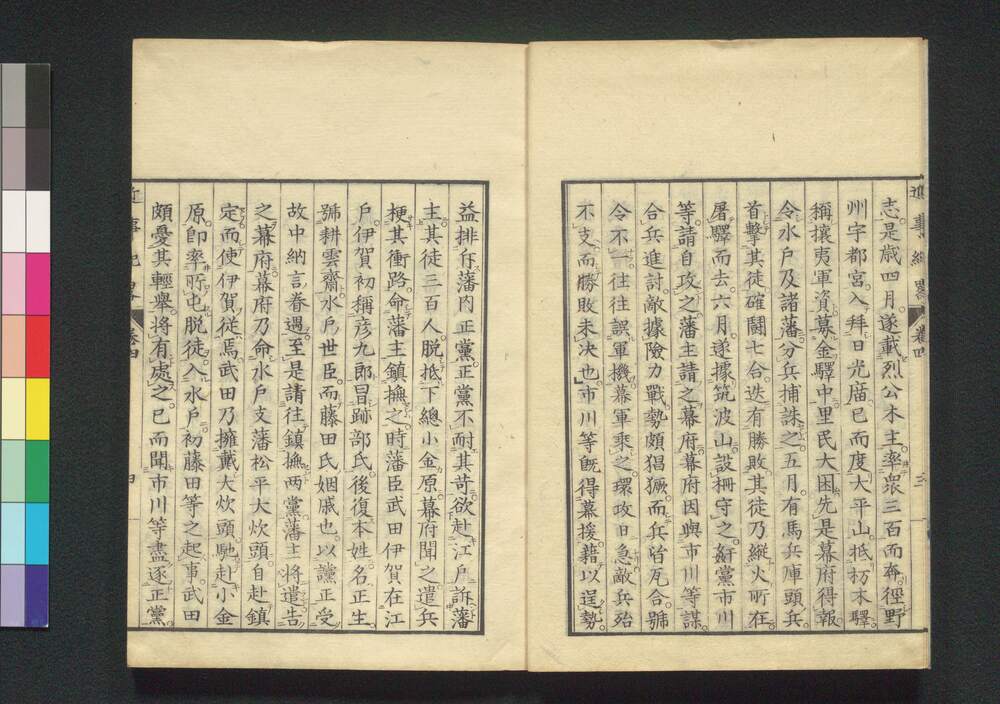 志是歲四月遂載烈公木主率衆三百而奔徑野
州宇都宮入拜日光廟已而度大平山抵栃木驛
稱攘夷軍資募金驛中里民大困先是幕府得報
令水戶及諸藩分兵捕誅之五月有馬兵庫頭兵
首擊其徒確鬪七合迭有勝敗其徒乃縱火所在
屠驛而去六月遂據筑波山設柵守之姧黨市川
等請自攻之藩主請之幕府幕府因與市川等謀
合兵進討敵據險力戰勢頗猖獗而兵皆瓦合號
令不一往往誤軍機幕軍乘之環攻日急敵兵殆
不支而勝敗未決也市川等旣得幕援藉以逞勢
近事紀畧 卷四 三
益排斥藩內正黨正黨不耐其苛欲赴江戶訴藩
主其徒三百人脫抵下總小金原幕府聞之遣兵
梗其衝路命藩主鎮撫之時藩臣武田伊賀在江
戶伊賀初稱彥九郞冒跡部氏後復本姓名正生
號耕雲齋水戶世臣而藤田氏姻戚也以讜正受
故中納言眷遇至是請往鎮撫兩黨藩主將遣告
之幕府幕府乃命水戶支藩松平大炊頭自赴鎮
定而使伊賀從焉武田乃擁戴大炊頭馳赴小金
原卽率所屯脫徒入水戶初藤田等之起事武田
頗憂其輕舉將有處之已而聞市川等盡逐正黨
近事紀畧 卷四 四